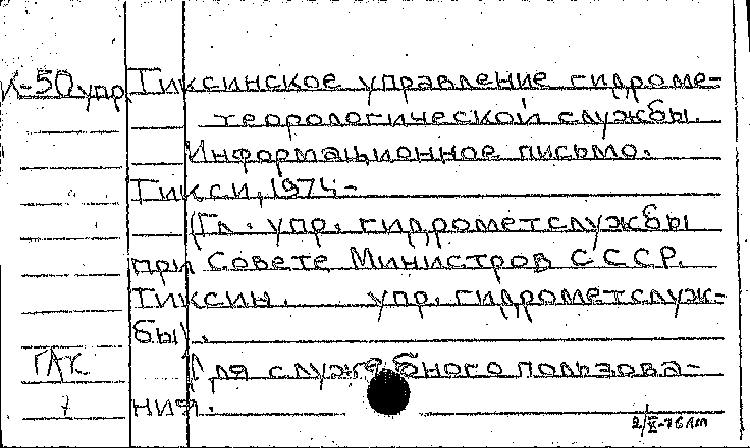 К-50 упр Тиксинское управление гидроме-
теорологической службы.
Информационное письмо.
Тикси, 1974-
(Гл. упр. гидрометслужбы
при Совете Министров СССР.
Тиксин. упр. гидрометслуж-
бы).
ГАК Для служебного пользова-
7 ния.